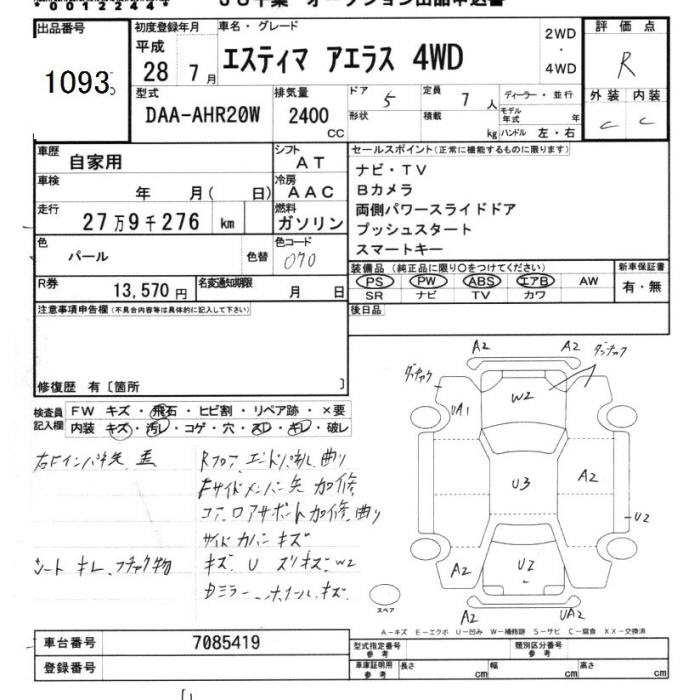 00122444 JU千葉 オークション出品申込書
出品番号 初度登録年月 車名・グレード 2WD ・ 4WD 評価点
1093 平成 28年 7月 エスティマ アエラス 4WD R
型式 排気量 ドア 5 定員 7人 ディーラー・並行 外装 内装
DAA-AHR20W 2400 CC 形状 積載 kg モデル年式 年 C C
ハンドル 左・右
車歴 自家用 シフト AT セールスポイント(正常に機能するものに限ります)
車検 年 月( 日) 冷房 AAC ナビ・TV
Bカメラ
走行 27万9千276 km 燃料 ガソリン 両側パワースライドドア
プッシュスタート
色 パール 色替 色コード 070 スマートキー
R券 13,570円 名変通知期限 月 日 装備品(純正品に限り○をつけてください) 新車保証書
PS PW ABS エアB AW 有・無
SR ナビ TV カワ
注意事項申告欄(不具合内容等は具体的に記入して下さい) 後日品
修復歴 有〔箇所 〕
検査員記入欄 FW キズ・飛石・ヒビ割・リペア跡・×要
内装 キズ・汚レ・コゲ・穴・スレ・キレ・破レ
A2 A2
W2
UA1
U3 A2
U2
A2 U2
A2 UA2
サイド カバー キズ
シート キレ
キズ U スリキズ W2
スペア
A-キズ E-エクボ U-凹み W-補修跡 S-サビ C-腐食 XX-交換済
車台番号 7085419 型式指定番号 参考 類別区分番号 参考
登録番号 車庫証明用 参考 長さ cm 幅 cm 高さ cm